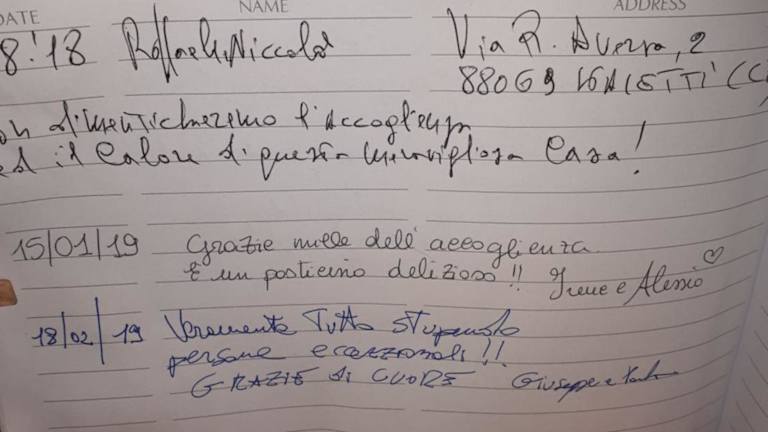 DATE NAME ADDRESS
8.'18 Raffaele Niccolò Via R. Aversa, 2
88069
on dimenticheremo l'accoglienza
ed il calore di questa meravigliosa Casa!
15/01/19 Grazie mille dell'accoglienza
È un posticino delizioso!! Irene e Alessio
18/02/19 Veramente Tutto stupendo
persone eccezzionali!!
GRAZIE di CUORE Giuseppe e